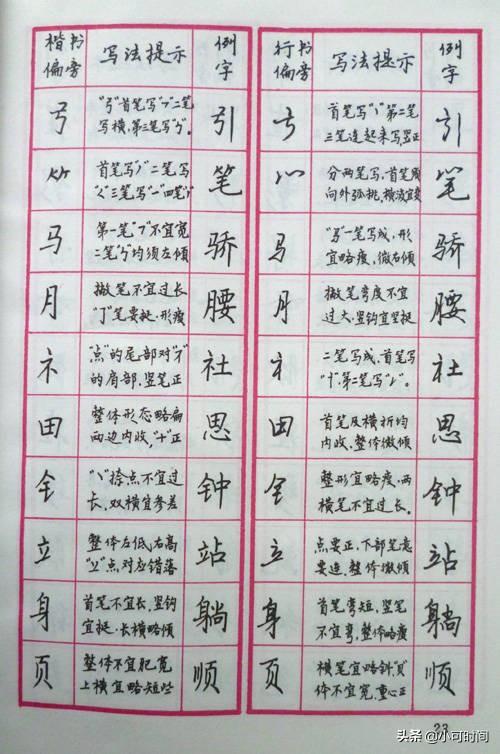 楷书偏旁 写法提示 例字
弓 "弓"首笔写"㇕"二笔写横,第三笔写"㇉"。 引
⺮ 首笔写"丿"二笔写 四笔 笔
马 第一笔"㇕"不宜宽二笔"㇉"均须左倾 骄
月 撇笔不宜过长"㇆"笔要挺,形瘦 腰
礻 "点"的尾部对"才"的肩部,竖笔正 社
田 整体形态略扁两边内收,"十"正 思
钅 捺点不宜过长,双横宜参差 钟
立 整体左低右高 点对应错落 站
身 首笔不宜长,竖钩宜挺·长横略倾 躺
页 整体不宜肥宽上横宜略短些 顺
行书偏旁 写法提示 例字
弓 首笔写 第二笔三笔连起来写,竖正 引
⺮ 分两笔写,首笔须向外弧挑,横波宜变 笔
马 "马"一笔写成,形宜略瘦,微右倾 骄
月 撇笔弯度不宜过大,竖钩宜坚挺 腰
礻 二笔写成,首笔写 第二笔写 社
田 首笔及横折均内收,整体微倾 思
钅 整形宜略瘦·两横笔不宜过长。 钟
立 点要正,下部笔意要连,整体微倾 站
身 首笔弯短,竖笔不宜弯,整体略瘦 躺
页 横笔宜略斜,"贝"体不宜宽,重心正 顺
23
头条 @小可时间